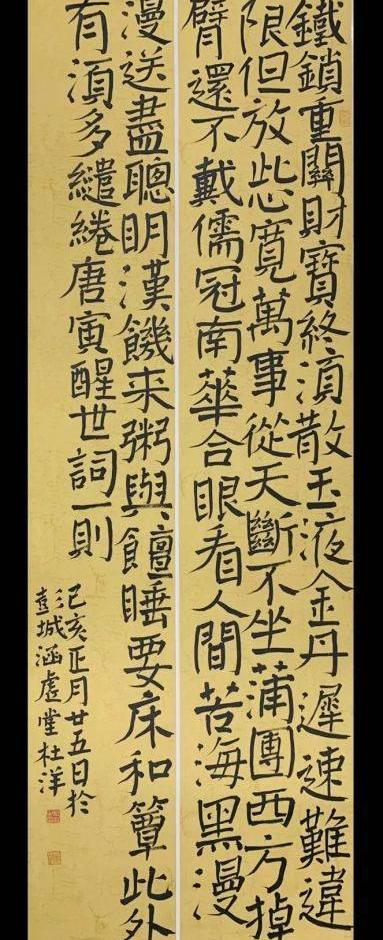 鐵鎖重關財寶終湏散玉液金丹遲速難違
限但放此心寬萬事從天斷不坐蒲團西方掉
臂還不戴儒冠南華合眼看人間苦海黑漫
漫送盡聰明漢饑来粥與饘睡要床和簟此外
有湏多繾綣唐寅醒世詞一則
己亥正月廿五日於
彭城涵虛堂杜洋